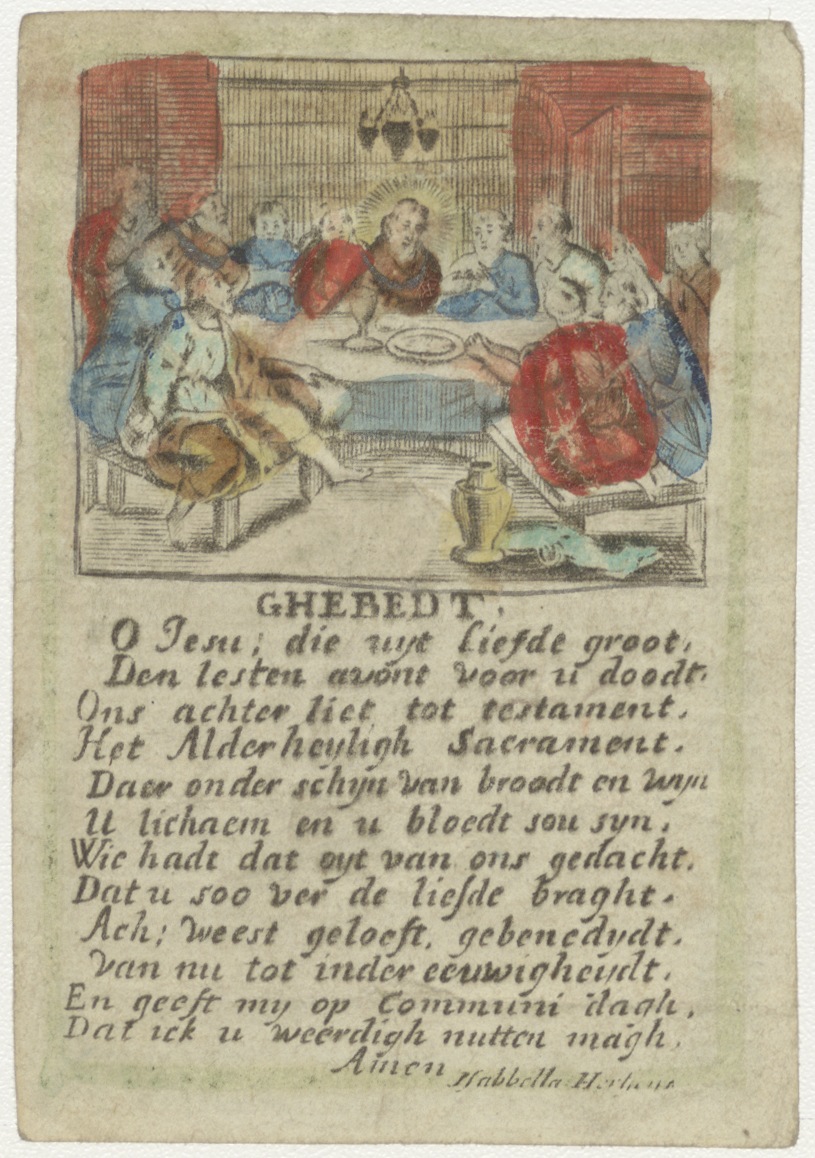 GHEBEDT.
O Jesu; die uyt liefde groot,
Den lesten avont voor u doodt,
Ons achter liet tot testament,
Het Alderheyligh Sacrament.
Daer onder schyn van broodt en wyn
U lichaem en u bloedt sou syn,
Wie hadt dat oyt van ons gedacht,
Dat u soo ver de liefde braght.
Ach; weest geloeft, gebenedydt,
Van nu tot inder eeuwigheydt,
En geeft my op Communi dagh,
Dat ick u weerdigh nutten magh,
Amen